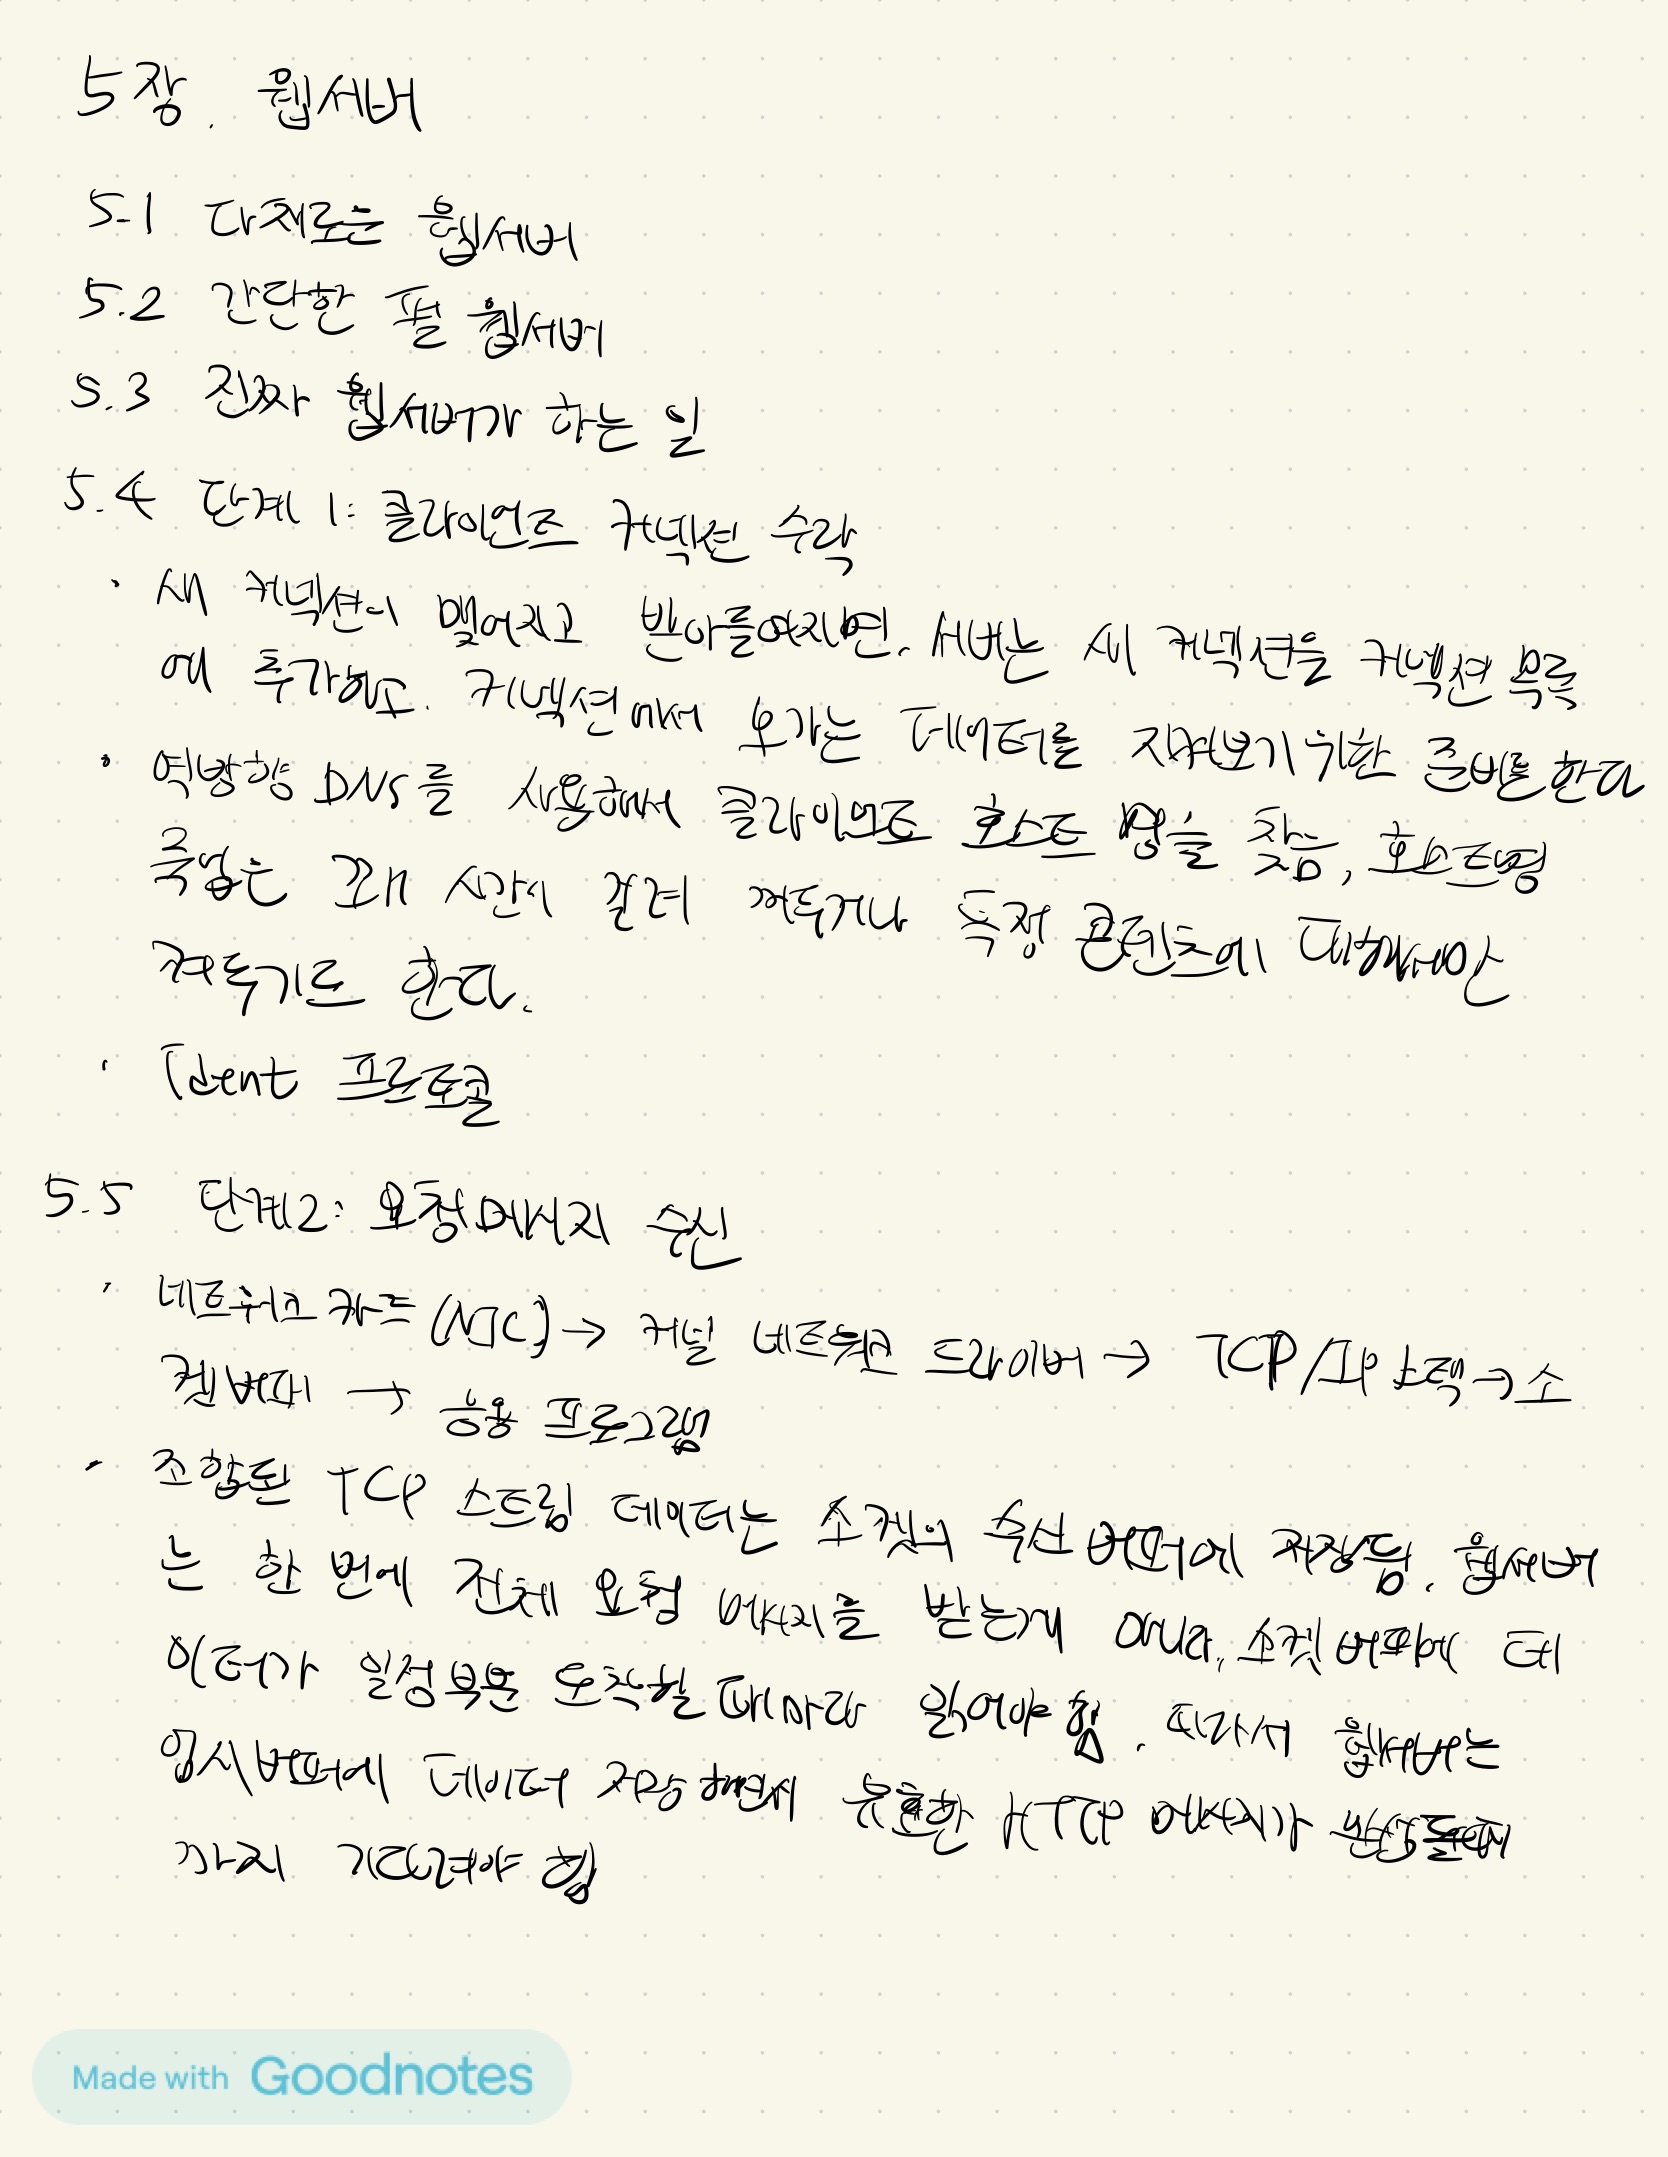 5장. 웹서버
5.1 다채로운 웹서버
5.2 간단한 펄 웹서버
5.3 진짜 웹서버가 하는 일
5.4 단계 1: 클라이언트 커넥션 수락
· 새 커넥션이 맺어지고 받아들여지면, 서버는 새 커넥션을 커넥션 목록
에 추가하고, 커넥션에서 오가는 데이터를 지켜보기 위한 준비를 한다
· 역방향 DNS를 사용해서 클라이언트 호스트 명을 찾음, 호스트명
룩업은 꽤 시간이 걸려 꺼두거나 특정 콘텐츠에 대해서만
켜두기도 한다.
· Ident 프로토콜
5.5 단계2: 요청메시지 수신
· 네트워크 카드(NIC) → 커널 네트워크 드라이버 → TCP/IP 스택 → 소
켓버퍼 → 응용 프로그램
· 조합된 TCP 스트림 데이터는 소켓의 수신 버퍼에 저장됨. 웹서버
는 한 번에 전체 요청 메시지를 받는게 아니라, 소켓 버퍼에 데
이터가 일정부분 도착할 때마다 읽어야 함. 따라서 웹서버는
임시버퍼에 데이터 저장하면서 유효한 HTTP 메시지가
까지 기다려야 함
Made with Goodnotes